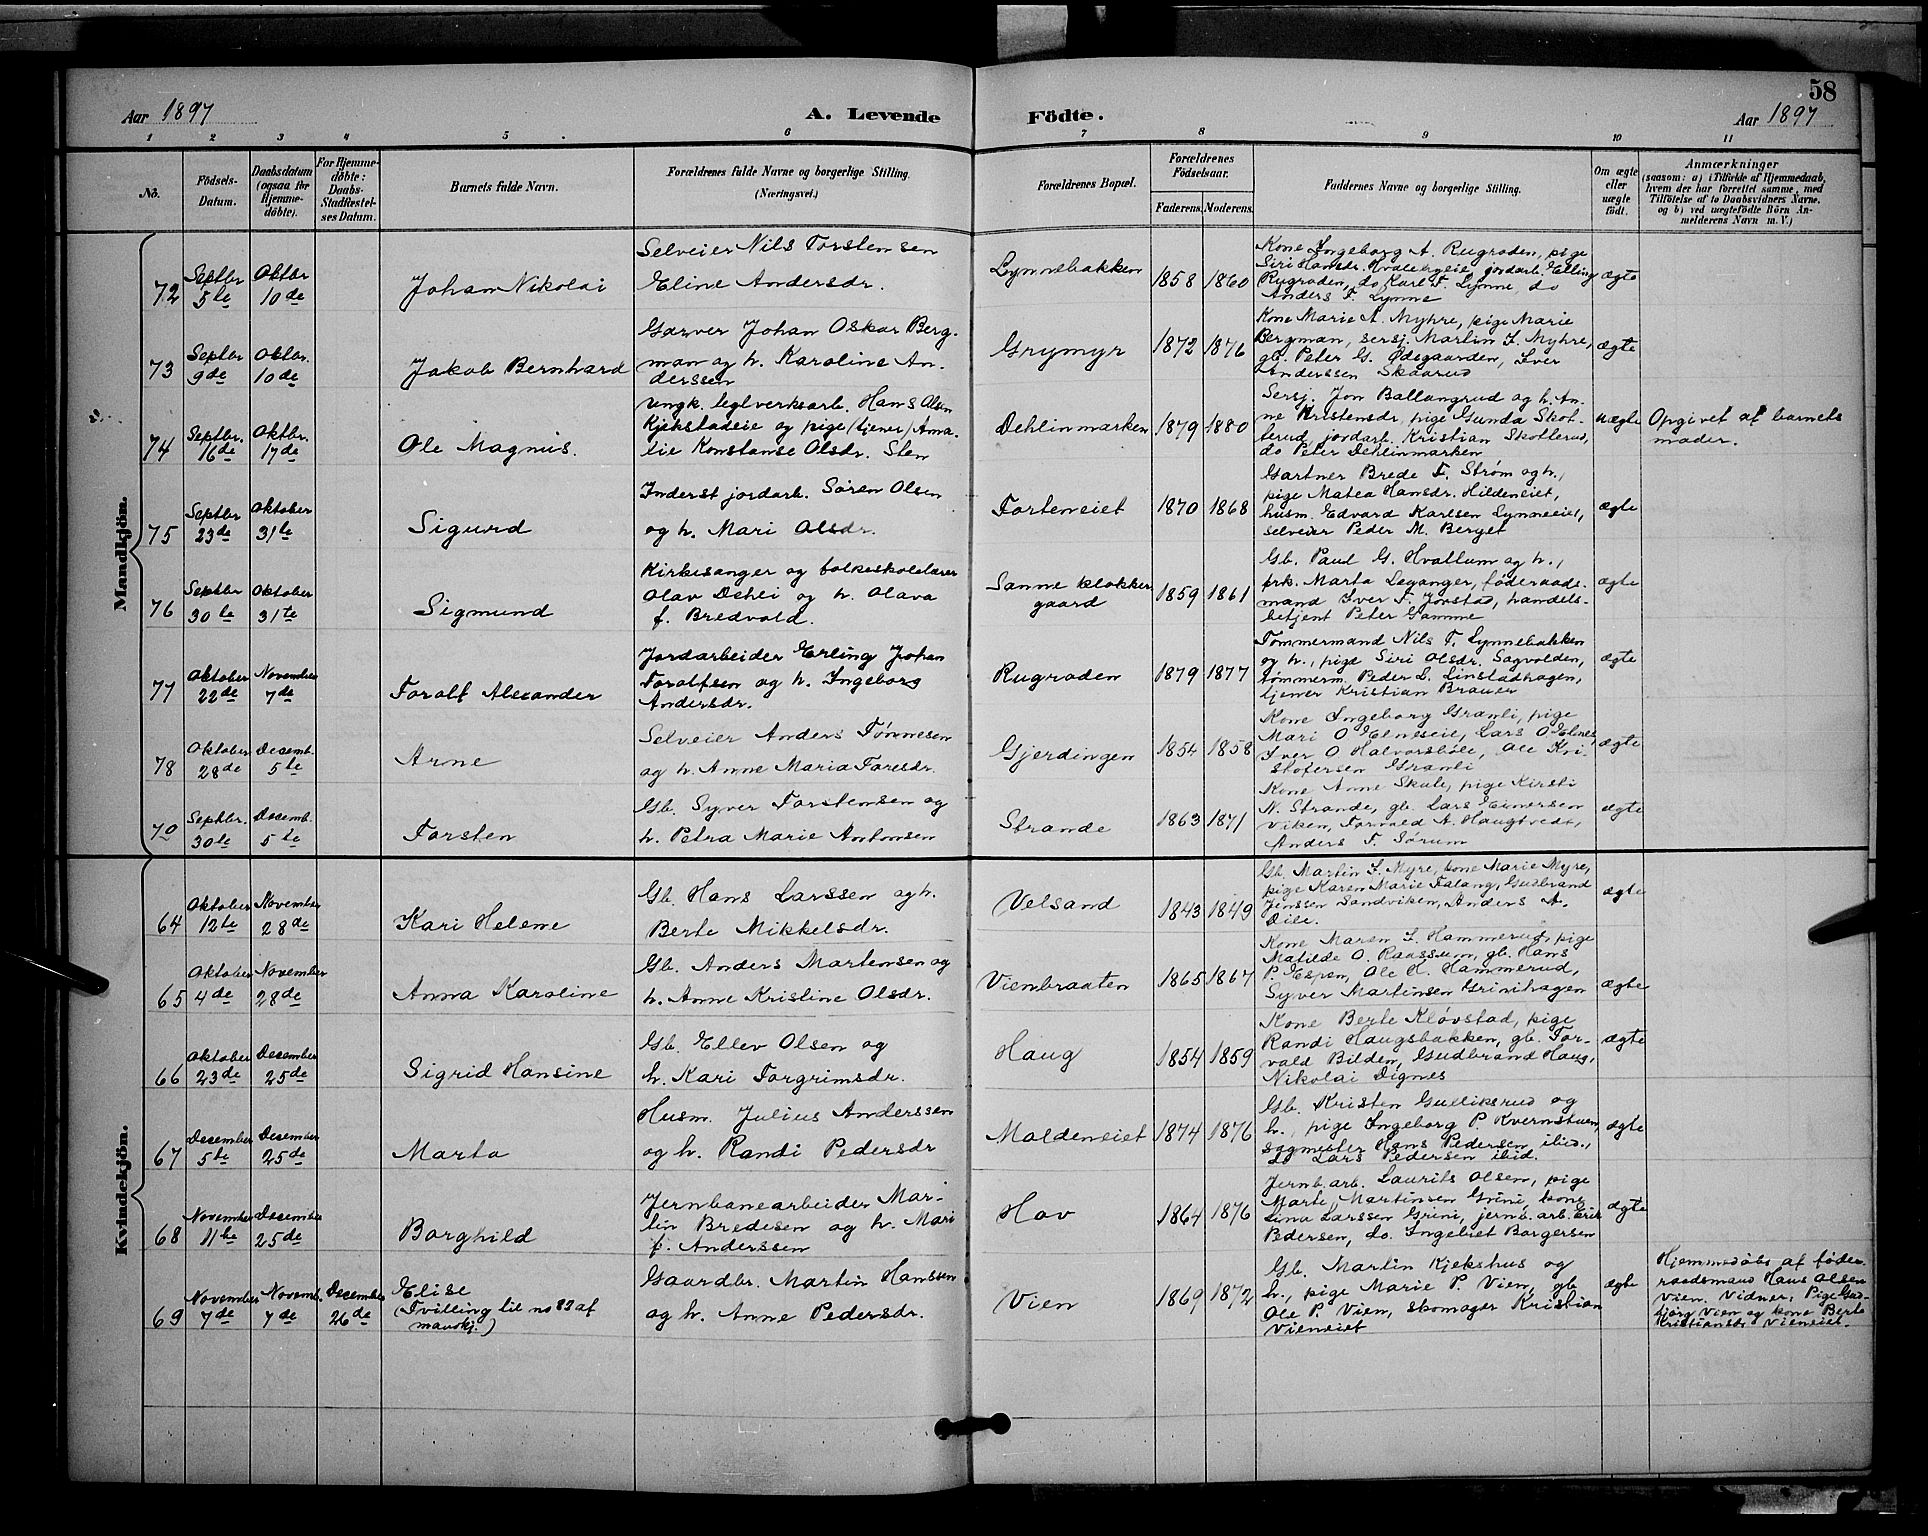 58
Aar 1897
A. Levende Födte.
Aar 1897
1 2 3 4 5 6 7 8 9 10 11
No.
Födsels-Datum.
Daabsdatum (ogsaa for Hjemmedöbte).
For Hjemmedöbte: Daabs-Stadfæstelses Datum.
Barnets fulde Navn.
Forældrenes fulde Navne og borgerlige Stilling. (Næringsvei.)
Forældrenes Bopæl.
Forældrenes Födselsaar.
Faderens. Moderens.
Faddernes Navne og borgerlige Stilling.
Om ægte eller uægte födt.
Anmærkninger
(saasom: a) i Tilfælde af Hjemmedaab,
hvem der har forrettet samme, med
Tilföielse af to Daabsvidners Navne,
og b) ved uægtefödte Börn An-
melderens Navn m. V.)
Mandkjön.
72
Septbr 5te
Oktbr 10de
Johan Nikolai
Selveier Nils Torstensen
Eline Andersdr.
Lynnebakken
1858 1860
Kone Ingeborg A. Rugroden, pige
Siri Hansdr. Hvalebyeie, jordarb. Elling
Rugroden, do Karl T. Lynne, do
Anders T. Lynne
ægte
73
Septbr 9de
Oktbr. 10de
Jakob Bernhard
Garver Johan Oskar Berg-
man og h. Karoline An-
derssen
Grymyr
1872 1876
Kone Marie A. Myhre, pige Marie
Bergman, sersj. Martin I. Myhre,
gb. Peter G. Ødegaarden, Iver
Anderssen Skaarud
ægte
74
Septbr. 16de
Oktbr. 17de
Ole Magnus.
Ungk. teglverksarb. Hans Olsen
Kjekstadeie og pige (tjener) Ama-
lie Konstanse Olsdr. Sten
Dehlinmarken
1879 1880
Sersj. Jon Ballangrud og h. An-
ne Kristensdr, pige Gunda Skot-
terud, jordarb. Kristian Skotterud,
do Peter Dehlinmarken
uægte
Opgivet af barnets
moder.
75
Septbr 23de
Oktober 31te
Sigurd
Inderst jordarb. Sören Olsen
og h. Mari Olsdr.
Torteneiet
1870 1868
Gartner Brede T. Strøm og h.,
pige Matea Hansdr. Hildeneiet,
husm. Edvard Karlsen Lynneeiet,
selveier Peder M. Berget
ægte
76
Septbr 30te
Oktober 31te
Sigmund
Kirkesanger og folkeskolelærer
Olav Dehli og h. Olava
f. Bredvold.
Sanne klokker
gaard
1859 1861
Gb. Paul G. Hvattum og h.,
frk. Marta Leganger, föderaads-
mand Iver T. Jorstad, handels-
betjent Peter Gamme
ægte
77
Oktober 22de
November 7de
Toralf Alexander
Jordarbeider Erling Johan
Toralfsen og h. Ingeborg
Andersdr.
Rugroden
1879 1877
Tömmermand Nils T. Lynnebakken
og h., pige Siri Olsdr. Sagvolden,
tömmerm. Peder L. Linstadhagen,
tjener Kristian Brauer
ægte
78
Oktober 28de
Decemb. 5te
Arne
Selveier Anders Tønnesen
og h. Anne Maria Toresdr.
Gjerdingen
1854 1858
Kone Ingeborg Granli, pige
Mari O Elneseie, Lars O Elnes,
Iver O Halvorsböle, Ole Kri-
stofersen Granli
ægte
70
Septbr. 30te
Decemb. 5te
Torsten
Gb. Syver Torstensen og
h. Petra Marie Antonsen
Strande
1863 1871
Kone Anne Skute, pige Kirsti
N. Strande, gb. Lars Einersen
Viken, Torvald A. Haugtvedt,
Anders T. Sörum
ægte
Kvindekjön.
64
Oktober 12te
November 28de
Kari Helene
Gb. Hans Larssen og h.
Berte Mikkelsdr.
Velsand
1843 1849
Gb. Martin I. Myre, kone Marie Myre,
pige Karen Marie Falang, Gudbrand
Jenssen Sandviken, Anders A.
ægte
65
Oktober 4de
November 28de
Anna Karoline
Gb. Anders Martensen og
h. Anne Kristine Olsdr.
Vienbraaten
1865 1867
Kone Maren I. Hammerud, pige
Matilde O. Raassum, gb. Hans
P. Espen, Ole H. Hammerud,
Syver Martinsen Grinihagen
ægte
66
Oktober 23de
December 25de
Sigrid Hansine
Gb. Ellev Olsen og
h. Kari Torgrimsdr.
Haug
1854 1859
Kone Berte Klövstad, pige
Randi Haugsbakken, gb. Tor-
vald Bilden, Gudbrand Haug,
Nikolai Dignes
ægte
67
December 5te
December 25de
Marta
Husm. Julius Anderssen
og h. Randi Pedersdr
Moldeneiet
1874 1876
Gb. Kristen Gulliksrud og
h., pige Ingeborg P. Kvernstuen,
sagmester Hans Pedersen ibid.,
do Lars Pedersen ibid.
ægte
68
November 11te
December 25de
Borghild
Jernbanearbeider Mar-
tin Bredesen og h. Mari
f. Anderssen
Hov
1864 1876
Jernb.arb. Laurits Olsen, pige
Marte Martinsen Grini, kone
Lina Larssen Grini, jernb. arb. Erik
Pedersen, do. Ingebret Borgersen
ægte
69
November 7de
Novemb. 7de
December 26de
Elise
(Tvilling til no 83 af
mandkj.)
Gaardbr. Martin Hanssen
og h. Anne Pedersdr.
Vien
1869 1872
Gb. Martin Kjekshus og
h., pige Marie P. Vien, gb.
Ole P. Vien, skomager Kristian
Vieneiet
ægte
Hjemmedöbt af föde-
raadsmand Hans Olsen
Vien. Vidner, Pige Gud-
björg Vien og kone Berte
Kristiansdr Vieneiet.